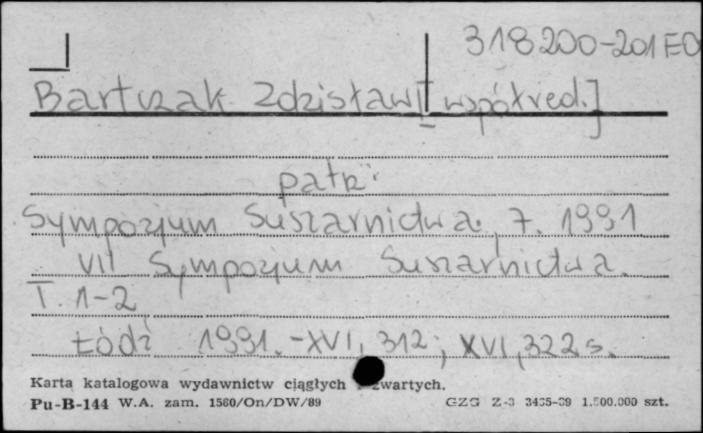 318200-201 EO
Bartczak Zdzisław [współred.]
patrz:
Sympozjum Suszarnictwa, 7. 1991
VII Sympozjum Suszarnictwa.
T. 1-2
Łódź 1991. -XVI, 312; XVI, 322 s.
Karta katalogowa wydawnictw ciągłych i zwartych.
Pu-B-144 W.A. zam. 1560/On/DW/89 GZG Z-3 3435-89 1.500.000 szt.